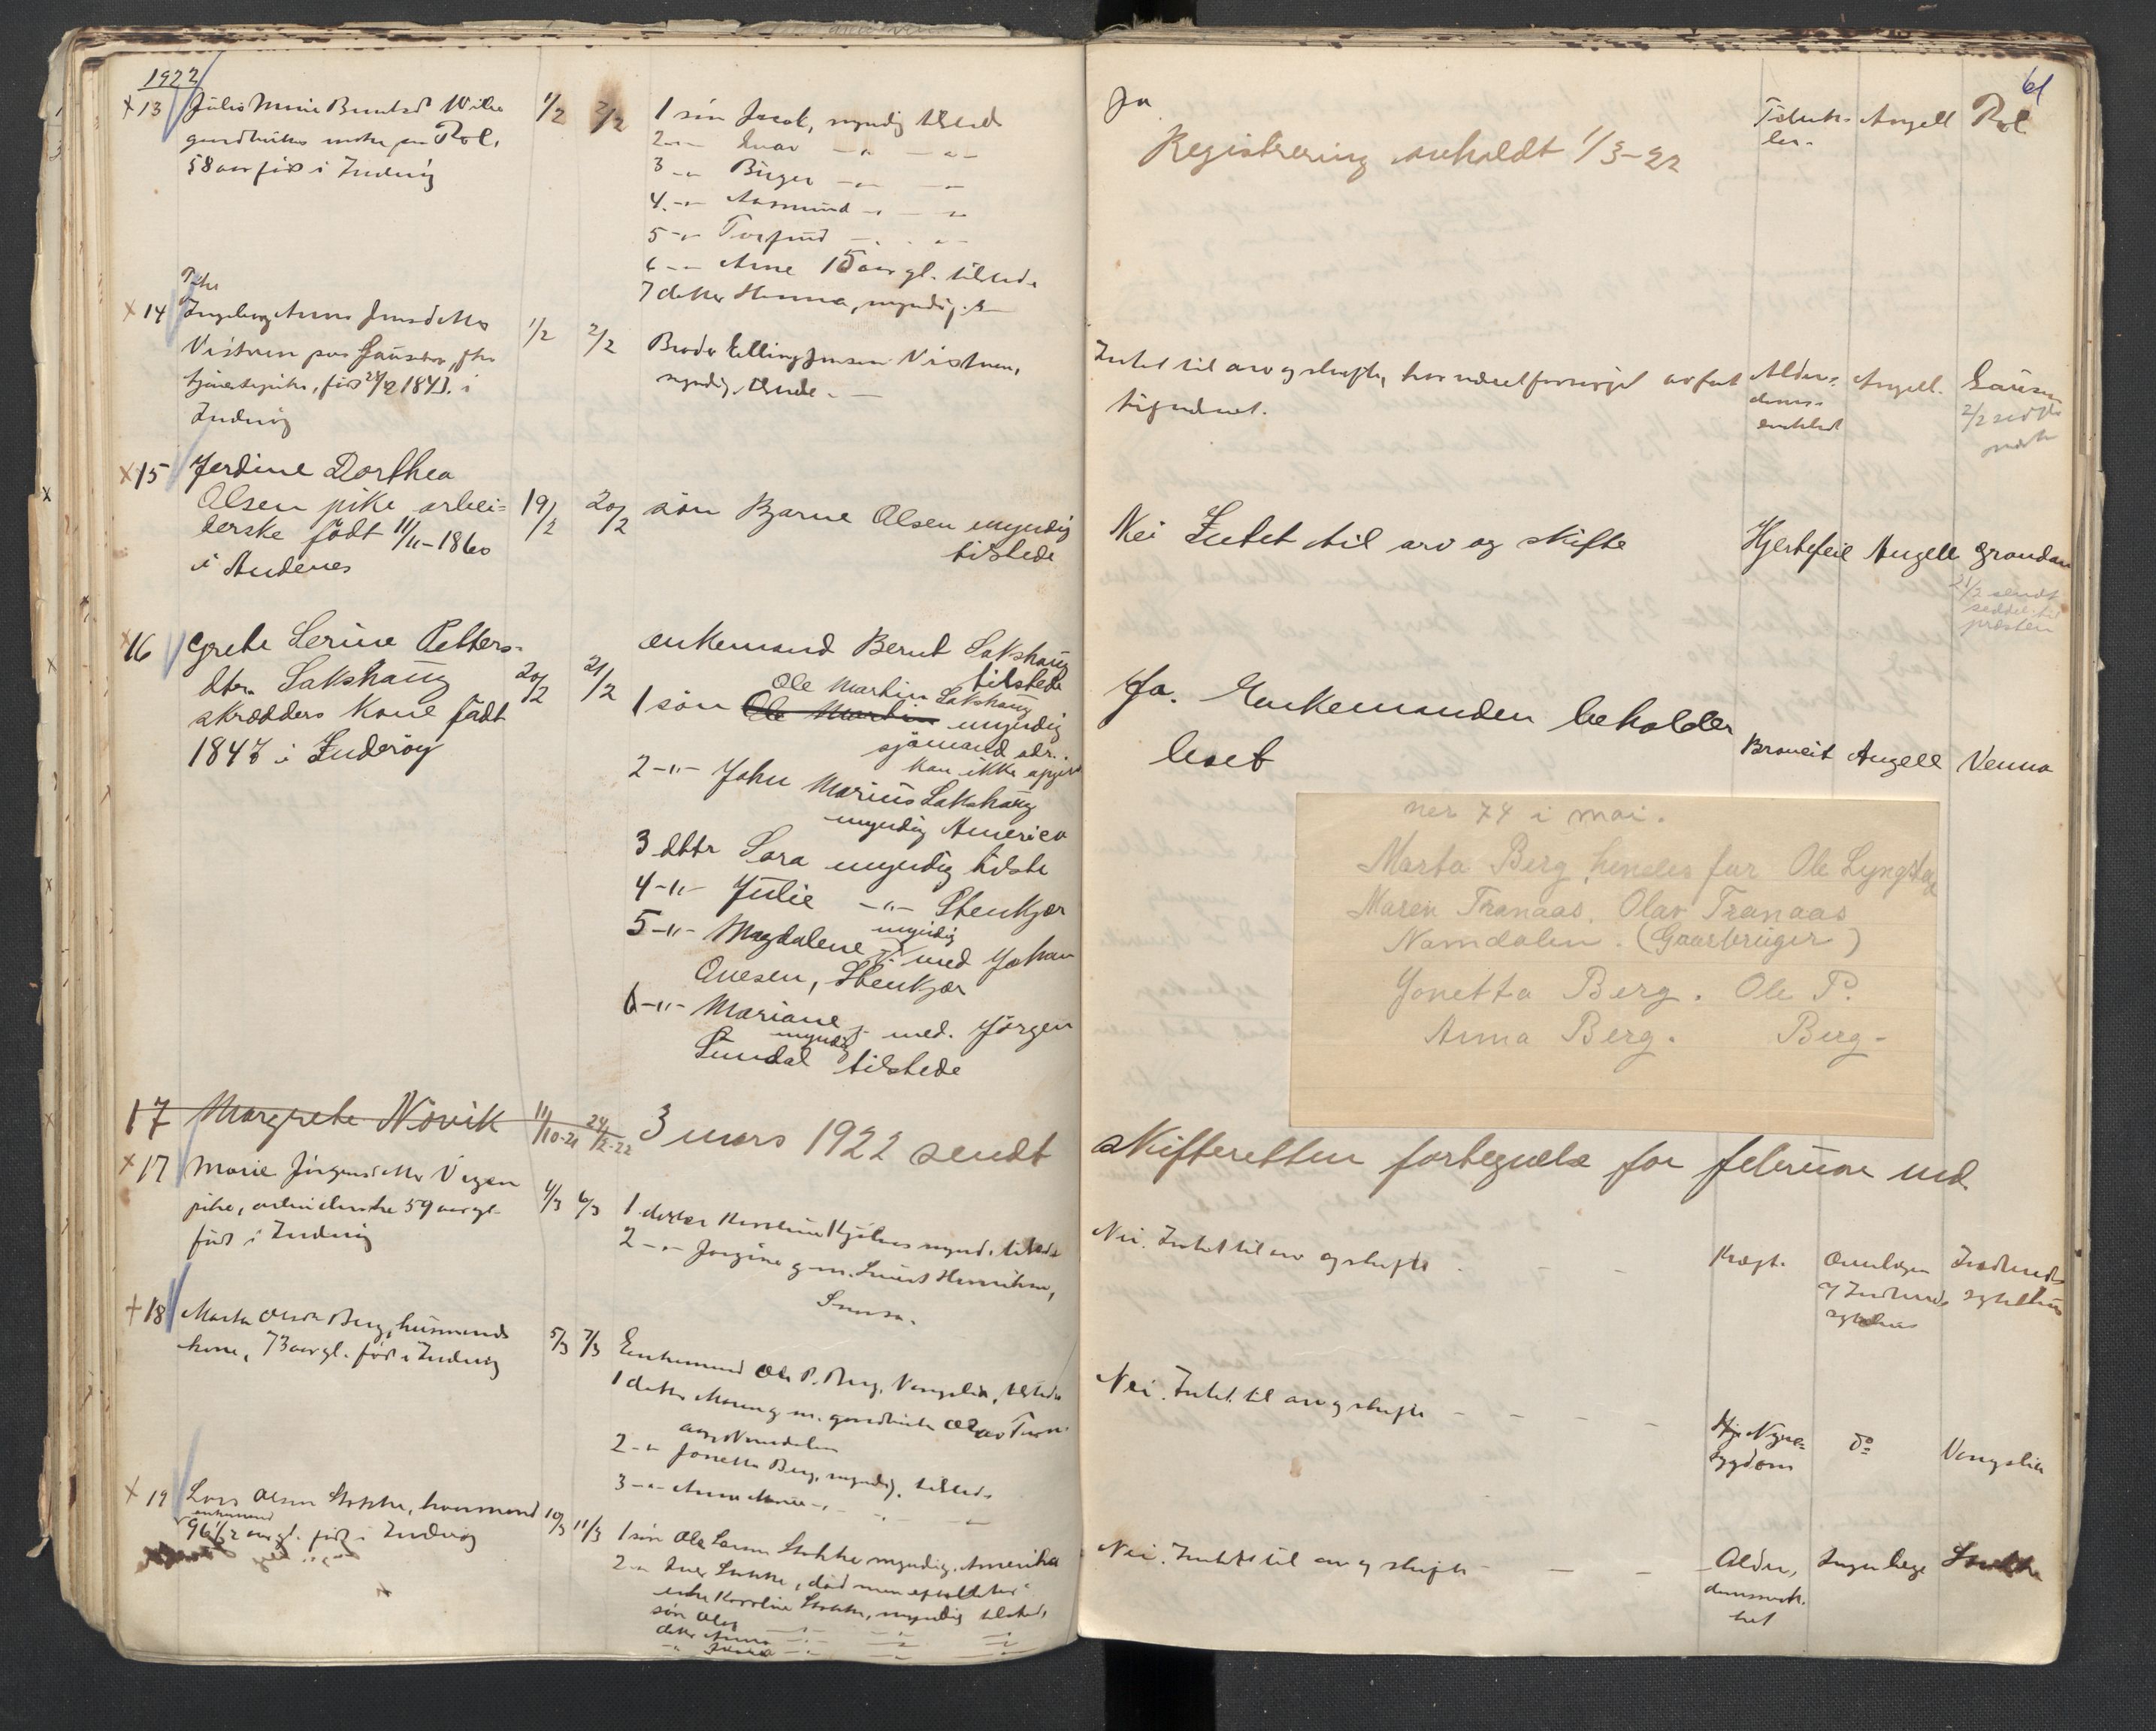 1922
61
+13 Julie Marie Berntsd Wiha
gaardbrukers enke paa Rol,
58 aar föd i Inderöy
1/2 2/2
1 sön Jacob, myndig tilstede
2 -"- Ivar -"- -"-
3 -"- Birger -"- -"-
4 -"- Aasmund -"- -"-
5 -"- Torfind -"- -"-
6 -"- Arne 15 aar gl. tilstede
7 datter Hanna, myndig
Ja
Registrering anholdt 1/3-22
Angell Rol
Pike
x14 Ingeborg Anna Jensdatter
Vistnes paa
tjenestepike, föd 1843 i
Inderöy
1/2 2/2
Broder Elling Jensen Vistnes,
myndig, tilstede.
Intet til arv og skifte, har været forsörget av fat
tigvæsenet.
Alder-
doms-
svakhet
Angell.
2/2
x15 Jerdine Dorthea
Olsen pike arbei=
terske födt 11/11-1860
i Andenes
19/2 20/2
sön Bjarne Olsen myndig
tilstede
Nei Intet til arv og skifte
Hjertefeil Angell Grandan
21/2 sendt
seddel til
presten
x16 Grete Serine Petters-
dtr. Sakshaug
skrædders Kone födt
1847 i Inderöy
20/2 21/2
enkemand Bernt Sakshaug
tilstede
Ole Martin Sakshaug
1 sön Ole Martin myndig
sjömand adr.
kan ikke opgives
2 -"- John Marius Sakshaug
myndig America
3 dttr Sara myndig tilste
4 -"- Julie -"- Stenkjær
myndig
5 -"- Magdalene g. med Johan
Ovesen, Stenkjær
6 -"- Mariane g. med. Jörgen
myndig
Sundal tilstede
Ja. Enkemanden beholder
boet
Braneit Angell Venna
ner 74 i mai.
Marta Berg, hendes far Ole Lyngstad
Maren Tranaas. Olav Tranaas
Namdalen. (Gaarbruger)
Jonetta Berg. Ole P.
Anna Berg. Berg-
17 Margrete Növik 11/10-21 24/2-22
3 mars 1922 sendt
skifteretten fortegnelse for februar md.
x17 Marie Jörgensdatter Vigen
pike, arbeiderske 59 aar gl.
föd i Inderöy
4/3 6/3
1 datter Karoline Kjölnes mynd. tilstede
2 -"- Jorgine g. m.
Snaasa.
Nei. Intet til arv og skifte - -
Kræft.
Indherreds
sykehus
+18 Marta Olsdr Berg, husmands
kone, 73 aar gl. föd i Inderöy
5/3 7/3
Enkemand Ole P. Berg, Vangslia, tilstede
1 datter Maren g. m. gaardbruker Olav Tran-
aas, Namdalen
2 -"- Jonetta Berg, myndig, tilstede
3 -"- Anna Marie -"- -"-
Nei. Intet til arv og skifte - - -
Nyre-
sygdom
do
Vangslia
x19 Lars Olsen Stokke, kaarmand
enkemand
96 1/2 aar gl. föd i Inderöy
10/3 11/3
1 sön Ole Larsen Stokke myndig, Amerika
2 -"- Iver Stokke, död men efterlatt
enke Karoline Stokke, myndig tilstede,
sön Olaf -"- -"- -"-
datter Anna -"- -"- -"-
Nei. Intet til arv og skifte - - -
Alder-
domssvak-
het
Ingen læge Stokke